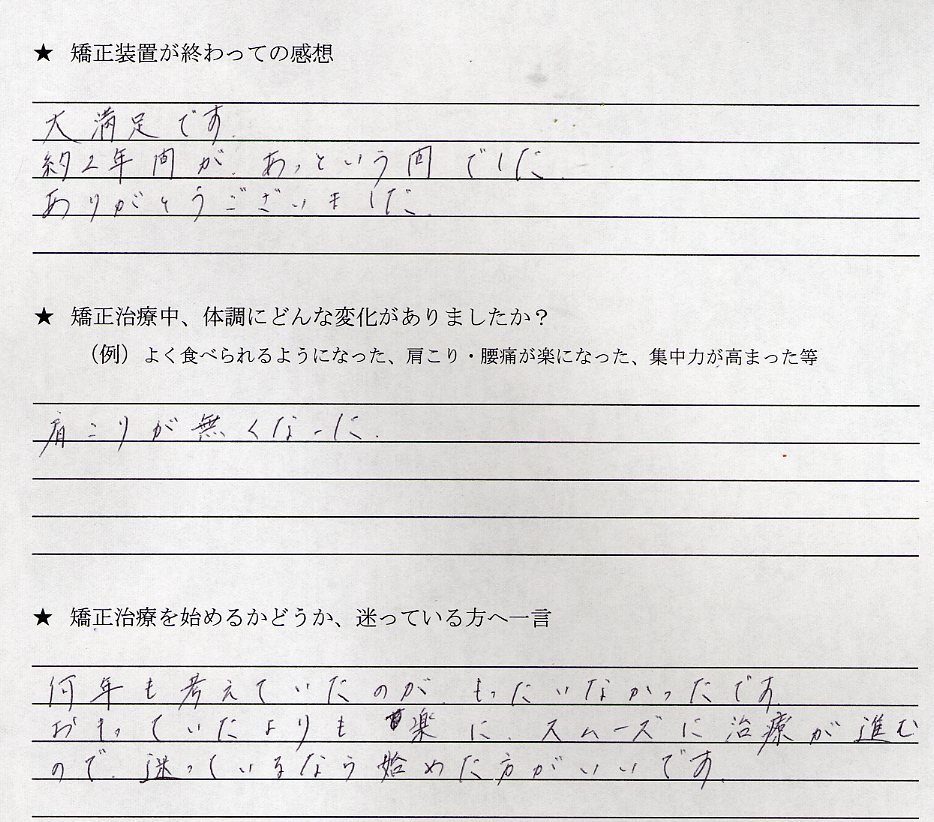 ★ 矯正装置が終わっての感想
大満足です.
約2年間が.あっという間でした.
ありがとうございました.
★ 矯正治療中、体調にどんな変化がありましたか？
（例）よく食べられるようになった、肩こり・腰痛が楽になった、集中力が高まった等
肩こりが無くなった.
★ 矯正治療を始めるかどうか、迷っている方へ一言
何年も考えていたのが.もったいなかったです.
おもっていたよりも楽に.スムーズに治療が進む
ので.迷っているなら始めた方がいいです.